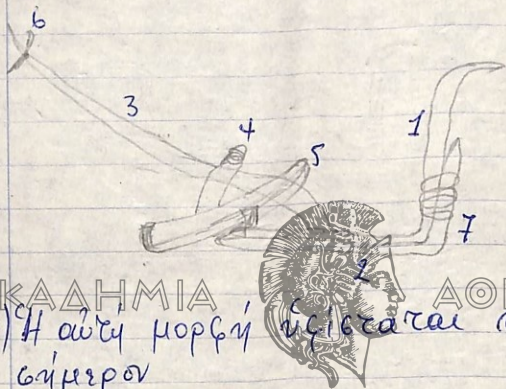 6
3
4
5
1
7
2
ΚΑΔΗΜΙΑ ΑΘ
) Ἡ αὐτή μορφή ὑφίσταται
σήμερον